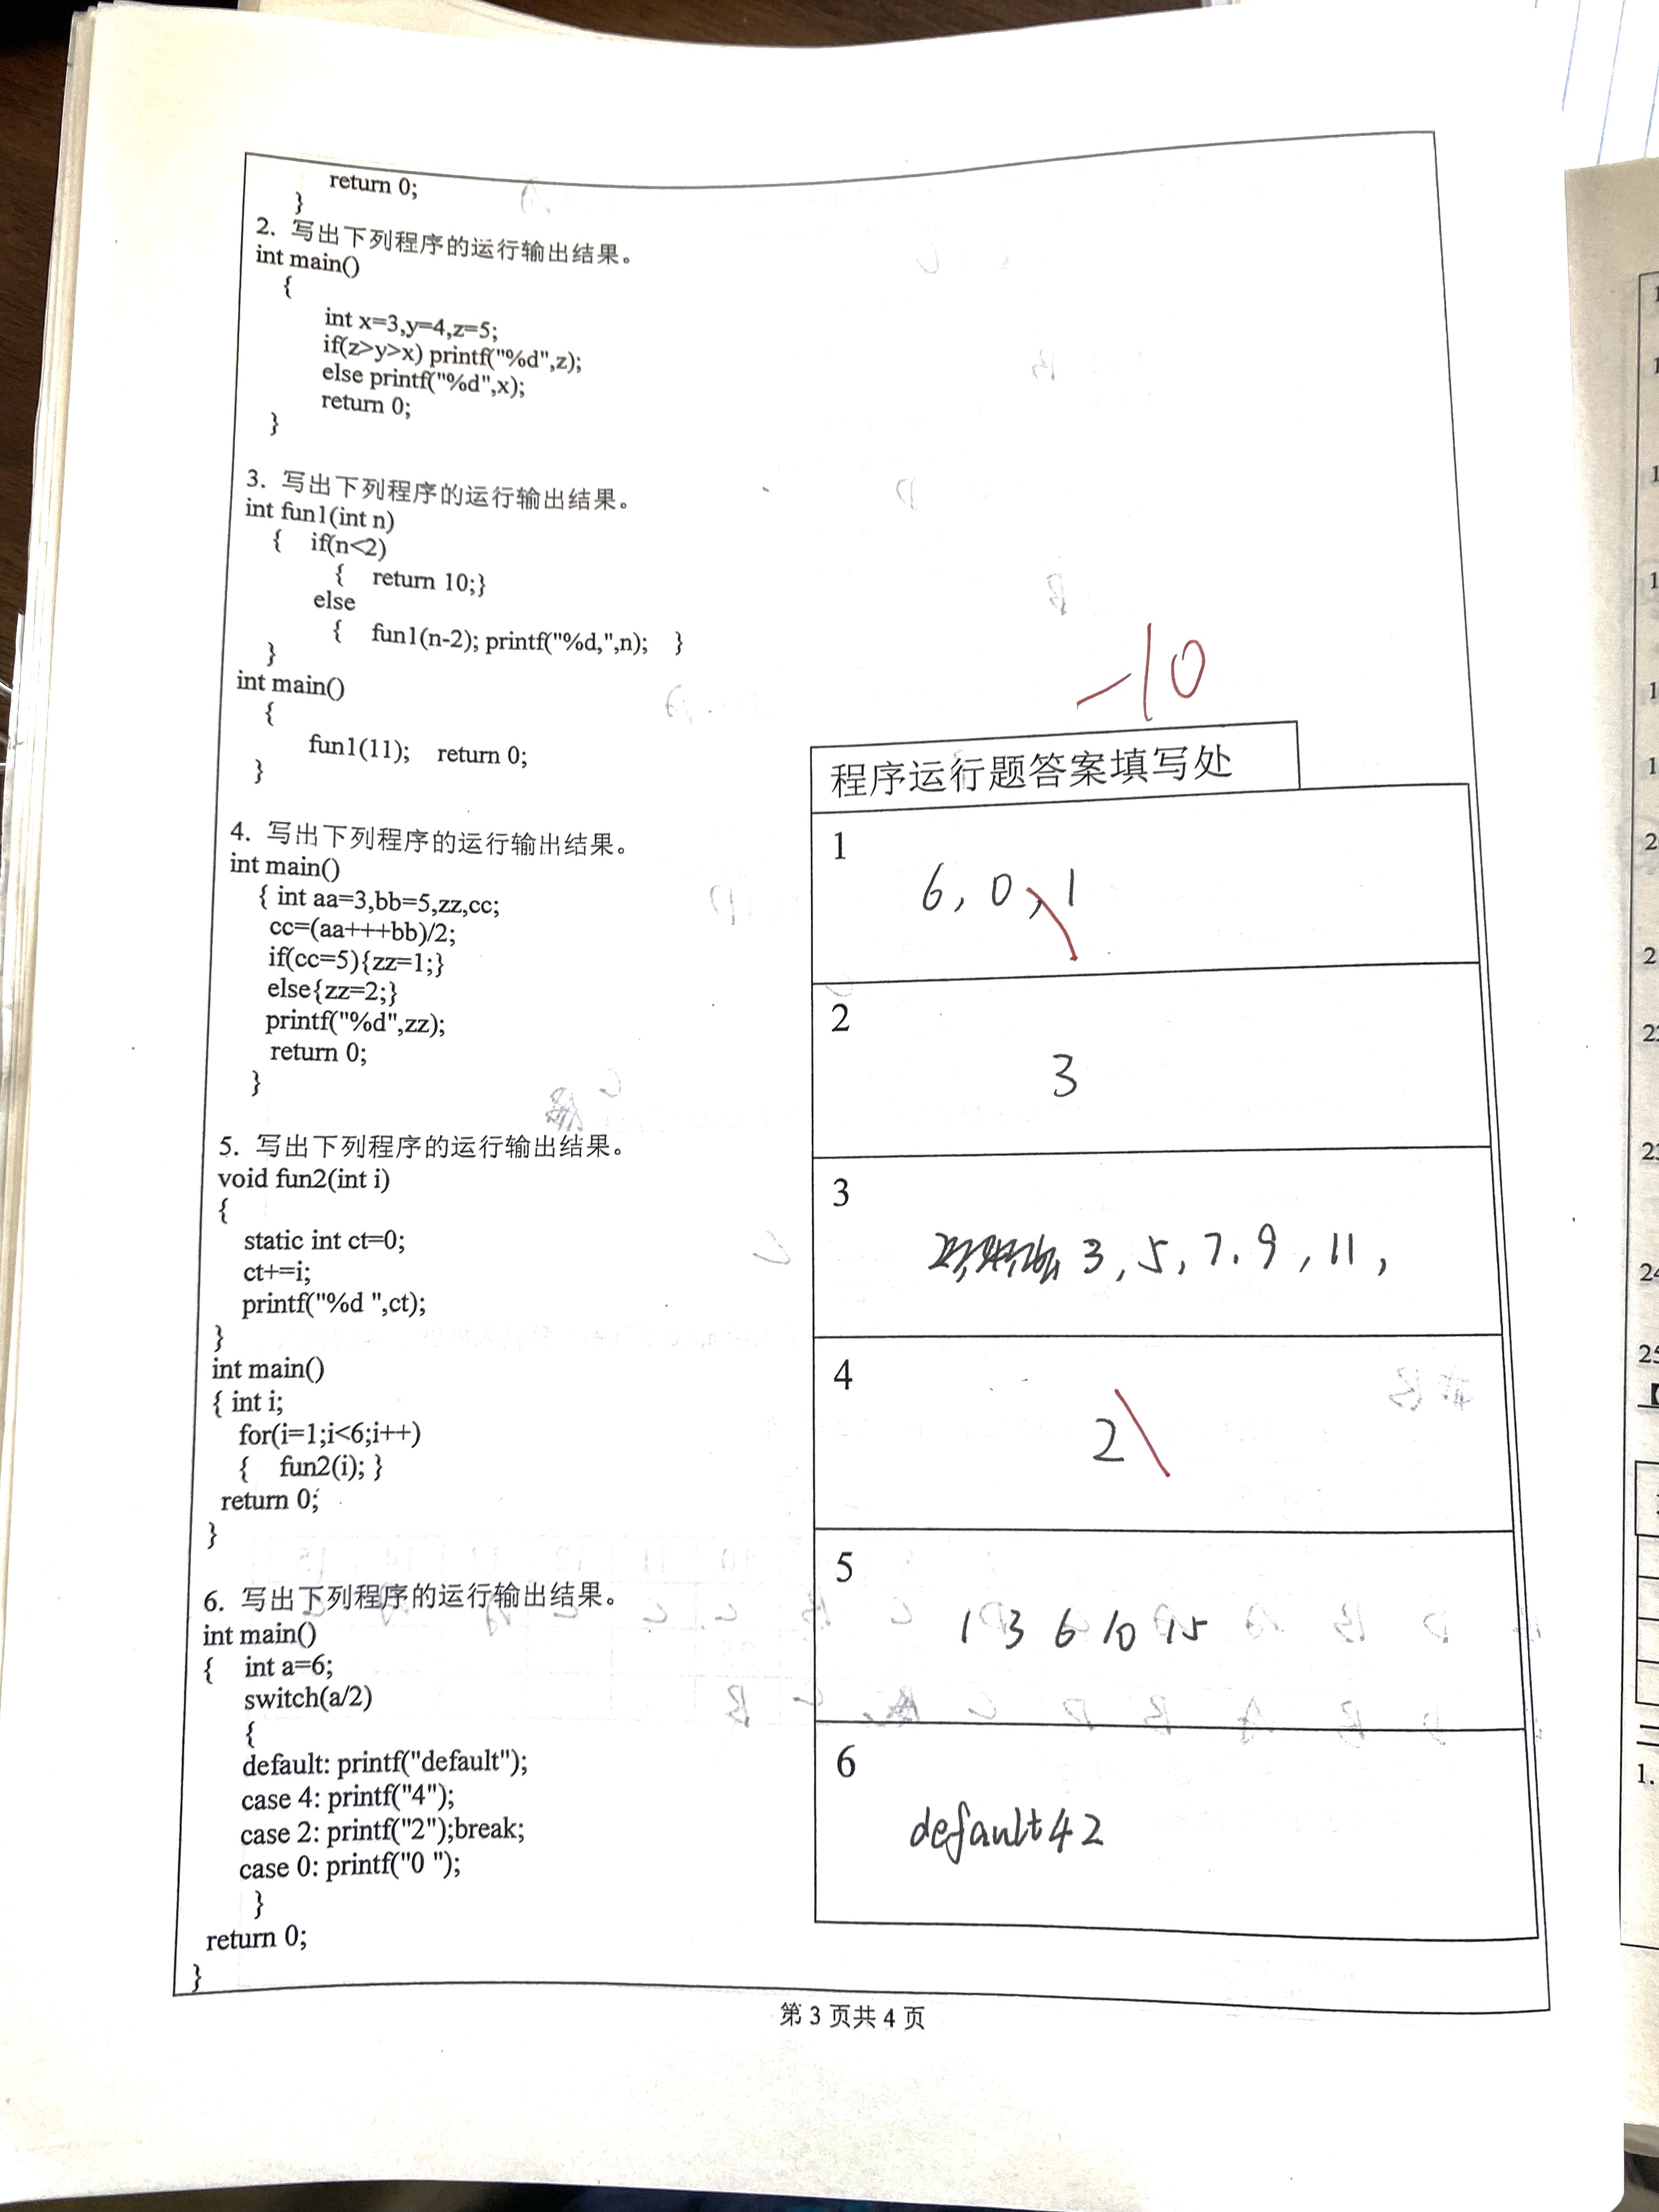 return 0;
}
2. 写出下列程序的运行输出结果。
int main()
{
int x=3,y=4,z=5;
if(z>y>x) printf("%d",z);
else printf("%d",x);
return 0;
}
3. 写出下列程序的运行输出结果。
int fun1(int n)
{ if(n<2)
{ return 10;}
else
{ fun1(n-2); printf("%d,",n); }
}
int main()
{
fun1(11); return 0;
}
4. 写出下列程序的运行输出结果。
int main()
{ int aa=3,bb=5,zz,cc;
cc=(aa+++bb)/2;
if(cc=5){zz=1;}
else{zz=2;}
printf("%d",zz);
return 0;
}
5. 写出下列程序的运行输出结果。
void fun2(int i)
{
static int ct=0;
ct+=i;
printf("%d ",ct);
}
int main()
{ int i;
for(i=1;i<6;i++)
{ fun2(i); }
return 0;
}
6. 写出下列程序的运行输出结果。
int main()
{ int a=6;
switch(a/2)
{
default: printf("default");
case 4: printf("4");
case 2: printf("2");break;
case 0: printf("0 ");
}
return 0;
}
-10
程序运行题答案填写处
1
6, 0, 1
2
3
3
3, 5, 7. 9, 11,
4
2
5
1 3 6 10 15
6
default42
第 3 页共 4 页